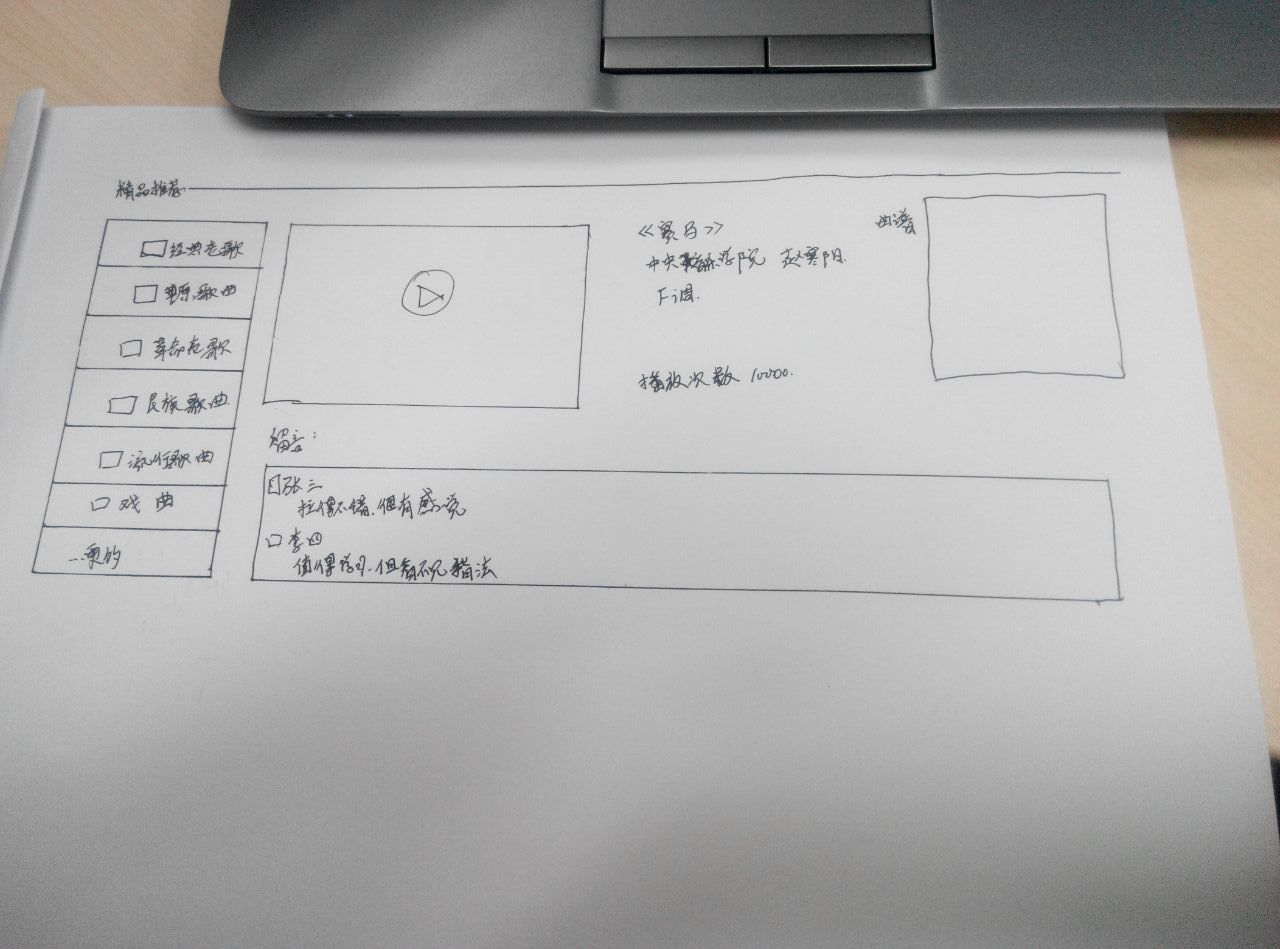 精品推荐
经典老歌
草原歌曲
革命老歌
民族歌曲
流行歌曲
戏曲
...更多
《赛马》
中央音乐学院 赵寒阳
F调.
播放次数 10000.
曲谱
留言:
张三
拉得不错.很有感觉
李四
值得学习.但看不见指法